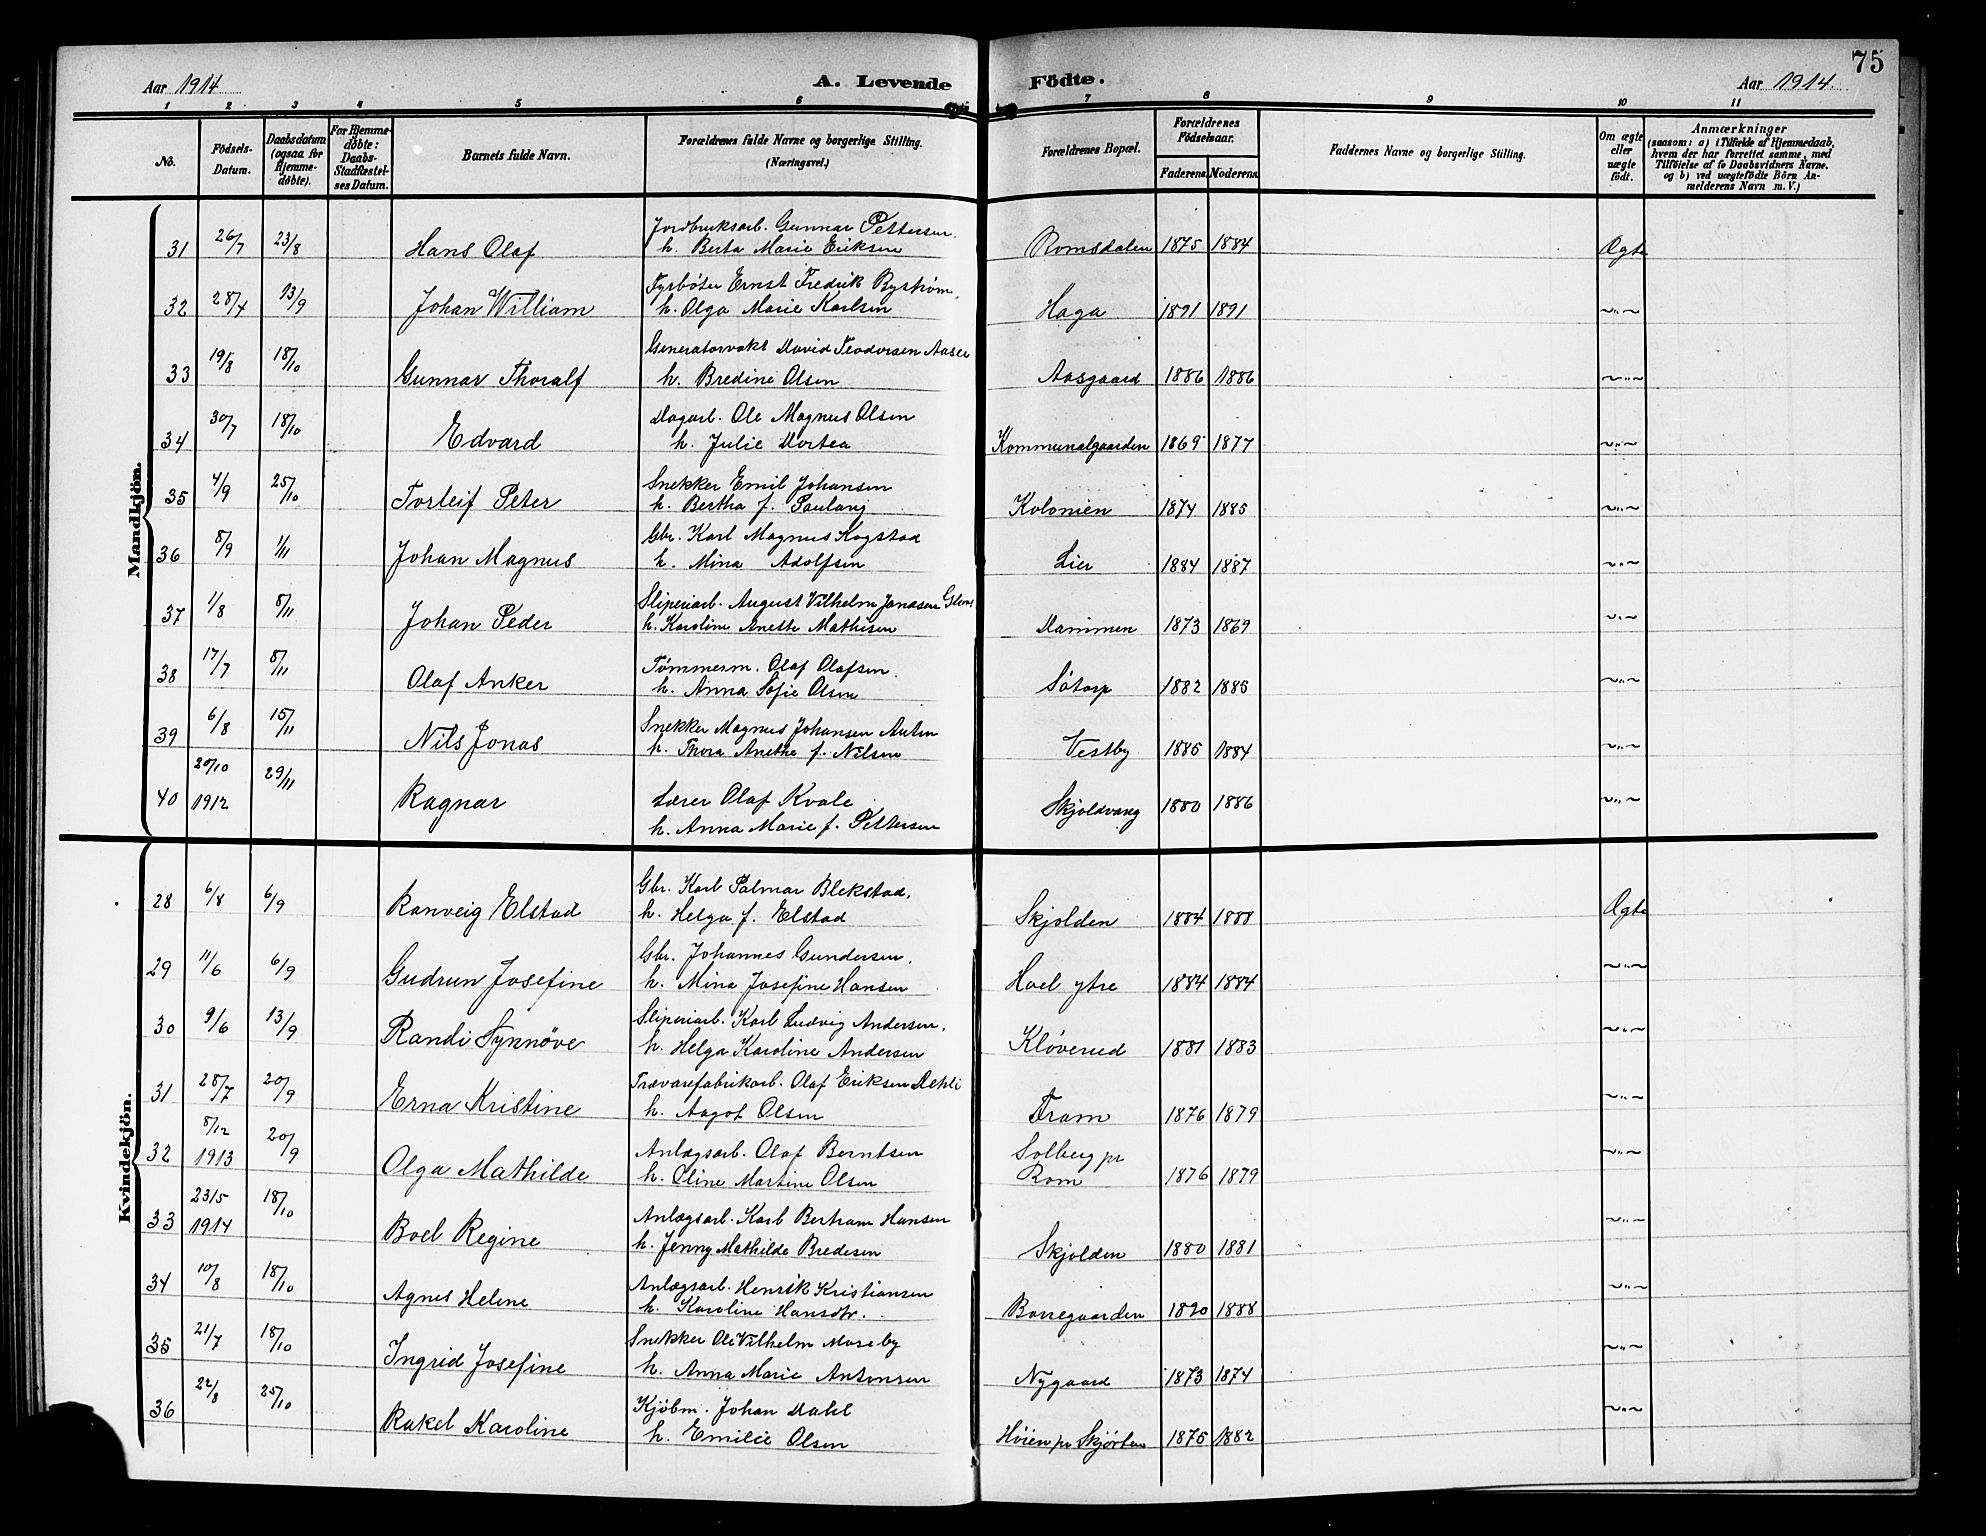 75
Aar 1914. A. Levende Födte. Aar 1914.
1 2 3 4 5 6 7 8 9 10 11
No. Födsels-Datum. Daabsdatum (ogsaa for Hjemme-döbte). For Hjemme-döbte: Daabs-Stadfæstel-ses Datum. Barnets fulde Navn. Forældrenes fulde Navne og borgerlige Stilling. (Næringsvei.) Forældrenes Bopæl. Forældrenes Födselsaar. Faderens. Moderens. Faddernes Navne og borgerlige Stilling. Om ægte eller uægte født. Anmærkninger (saasom: a) i Tilfælde af Hjemmedaab, hvem der har forrettet samme, med Tilföielse af to Daabsvidners Navne. og b) ved uægtefödte Börn An-melderens Navn m. V.)
Mandkjön.
31 26/7 23/8 Hans Olaf Jordbruksarb. Gunnar Pettersen, Romsdalen 1875 1884 Ægte
h. Berta Marie Eriksen
32 28/4 13/9 Johan William Fyrbøter Ernst Fredrik Bystrøm, Haga 1891 1891 ~"~
h. Olga Marie Karlsen
33 19/8 18/10 Gunnar Thoralf Generatorvakt David Teodorsen Aaser Aasgaard 1886 1886 ~"~
h. Bredine Olsen
34 30/7 18/10 Edvard Dagarb. Ole Magnus Olsen Kommunalgaarden 1869 1877 ~"~
h. Julie Dortea
35 4/9 25/10 Torleif Peter Snekker Emil Johansen Kolonien 1874 1885 ~"~
h. Bertha f.
36 8/9 1/11 Johan Magnus Gbr. Karl Magnus Kogstad Lier 1884 1887 ~"~
h. Mina Adolfsen
37 1/8 8/11 Johan Peder Sliperiarb. August Vilhelm Jonassen Dammen 1873 1869 ~"~
h. Karoline Anette Mathisen
38 17/7 8/11 Olaf Anker Tømmerm. Olaf Olafsen. Søtorp 1882 1885 ~"~
h. Anna Sofie Olsen
39 6/8 15/11 Nils Jonas Snekker Magnus Johansen Vestby 1885 1884 ~"~
h. Thora Anethe f. Nilsen
40 20/10 1912 29/11 Ragnar Lærer Olaf Kvale Skjoldvang 1880 1886 ~"~
h. Anna Marie f. Pettersen
Kvindekjön.
28 6/8 6/9 Ranveig Elstad Gbr. Karl Palmar Blekstad, Skjolden 1884 1888 Ægte
h. Helga f. Elstad
29 11/6 6/9 Gudrun Josefine Gbr. Johannes Gundersen, Hoel ytre 1884 1884 ~"~
h. Mina Josefine Hansen
30 9/6 13/9 Randi Synnøve Sliperiarb. Karl Ludvig Andersen, Kløverud 1881 1883 ~"~
h. Helga Karoline Andersen
31 28/7 20/9 Erna Kristine Trævarefabrikarb. Olaf Eriksen Dehli Fram 1876 1879 ~"~
h. Aagot Olsen
32 8/12 1913 20/9 Olga Mathilde Anlægsarb. Olaf Berntsen Solberg pr Rom 1876 1879 ~"~
h. Oline Martine Olsen
33 23/5 1914 18/10 Boel Regine Anlægsarb. Karl Bertram Hansen Skjolden 1880 1881 ~"~
h. Jenny Mathilde Bredesen
34 10/8 18/10 Agnes Helene Anlægsarb. Henrik Kristiansen Borregaarden 1888 ~"~
h. Karoline Hansdtr.
35 21/7 18/10 Ingrid Josefine Snekker Ole Vilhelm Moseby Nygaard 1873 1874 ~"~
h. Anna Marie Antonsen
36 22/8 25/10 Rakel Karoline Kjøbm. Johan Dahl Høien pr Skjørten 1875 1882 ~"~
h. Emilie Olsen